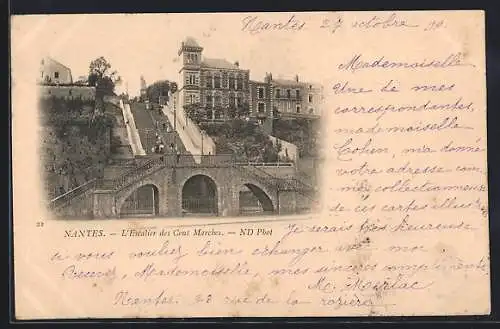 Nantes 27 octobre 99.
Mademoiselle
Une de mes
correspondantes,
mademoiselle
Cohen, m'a donné
votre adresse com-
me collectionneuse
de ces cartes illustrées
22
NANTES. — L'Escalier des Cent Marches. — ND Phot
Je serais très heureuse
si vous vouliez bien échanger avec moi
Recevez, Mademoiselle, mes sincères compliments
M.
Nantes. 23 rue de la rozière